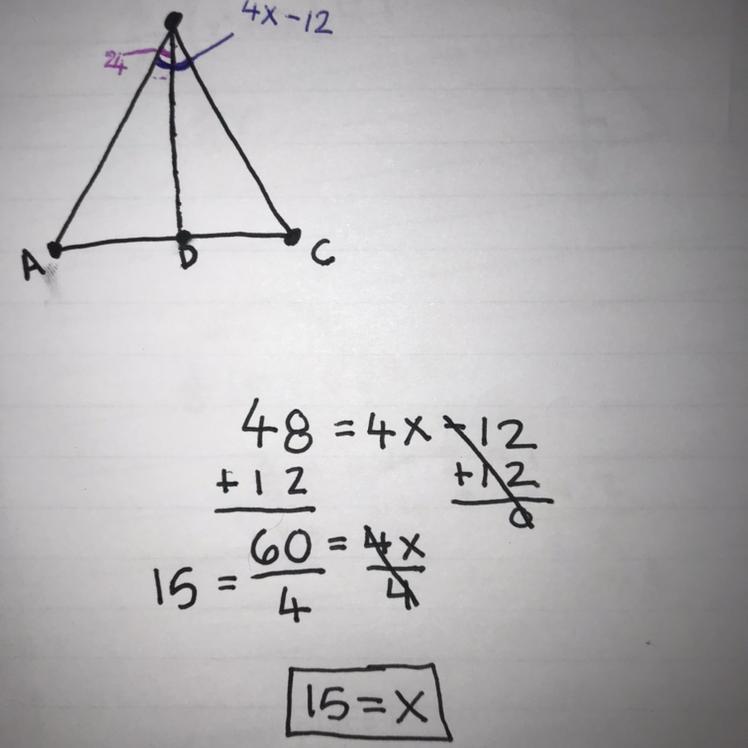 4x-12
24
A D C
48 = 4x -12
+12 +12
0
60 = 4x
15 = 4 4
15 = x